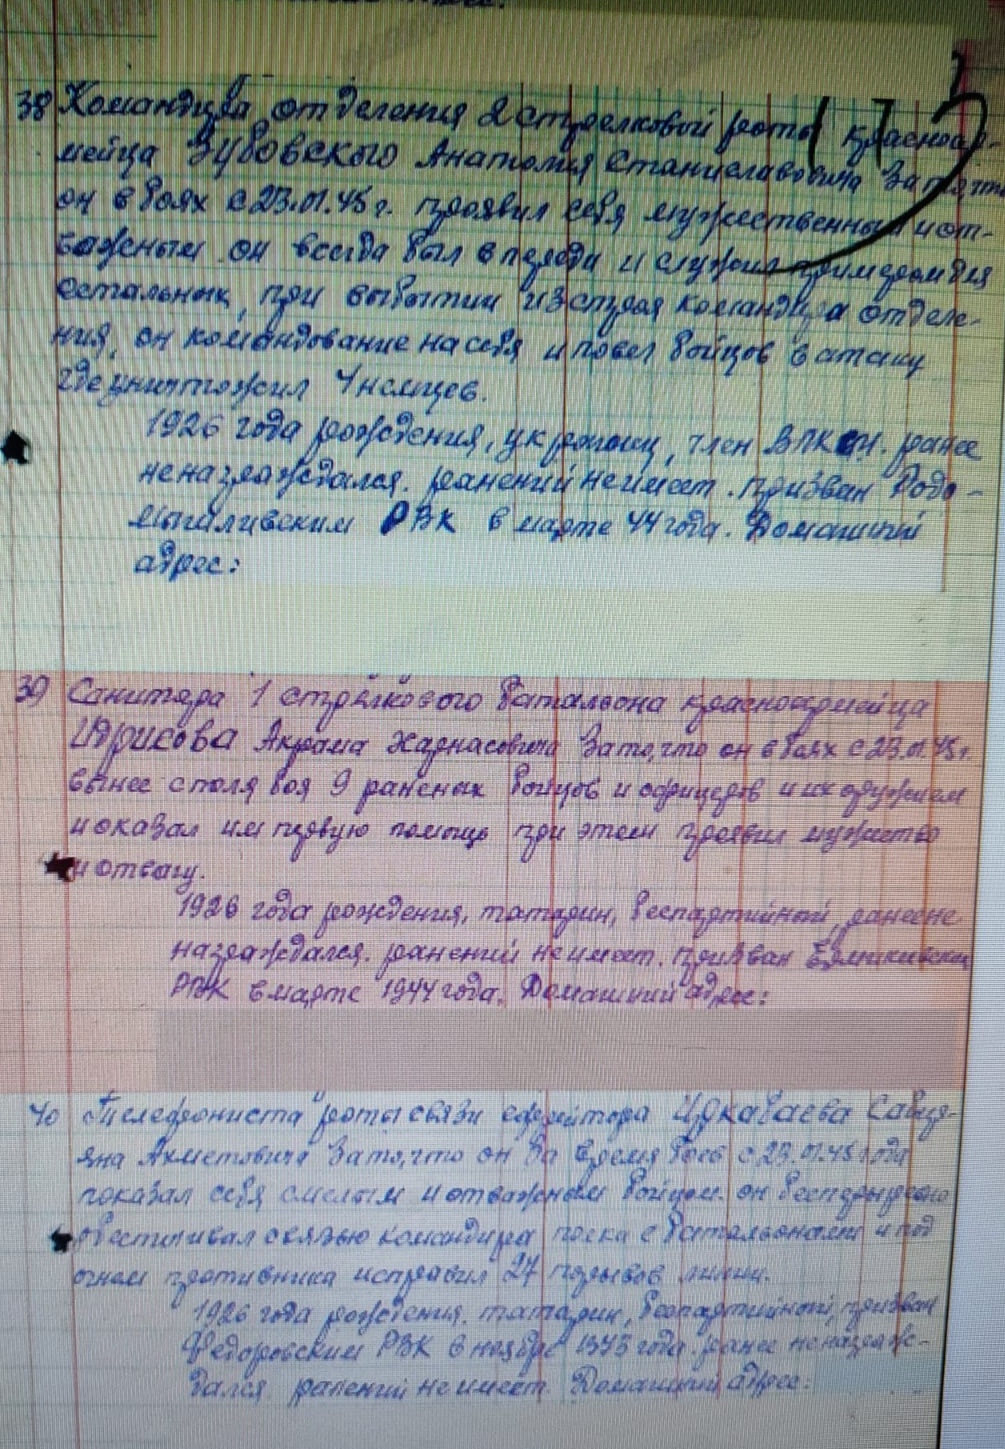 38 Командира отделения 2 стрелковой роты красноар-
мейца Зубовского Анатолия Станиславовича За то, что
он в боях с 23.01.45 г. проявил себя мужественным и от-
важным он всегда был впереди и служил примером для
остальных, при выбытии из строя командира отделе-
ния, он командование на себя и повел бойцов в атаку
где уничтожил 4 немцев.
1926 года рождения, украинец, член ВЛКСМ. ранее
не награждался. ранений не имеет. призван Родо-
мышливским РВК в марте 44 года. Домашний
адрес:
39 Санитара 1 стрелкового батальона красноармейца
Идрисова Акрама За то, что он в боях с 23.01.45 г.
вынес с поля боя 9 раненых бойцов и офицеров и их оружием
и оказал им первую помощь при этом проявил мужество
и отвагу.
1926 года рождения, татарин, беспартийный, ранее не
награждался. ранений не имеет. призван
РВК в марте 1944 года. Домашний адрес:
40 Телефониста роты связи ефрейтора
Ахметовича За то, что он за время боев с 23.01.45 года
показал себя смелым и отважным бойцом. он
связью командира полка с батальонами и под
огнем противника исправил 27 порывов линии.
1926 года рождения. татарин, беспартийный, призван
Федоровским РВК в ноябре года. ранее не награж-
дался. ранений не имеет. Домашний адрес: